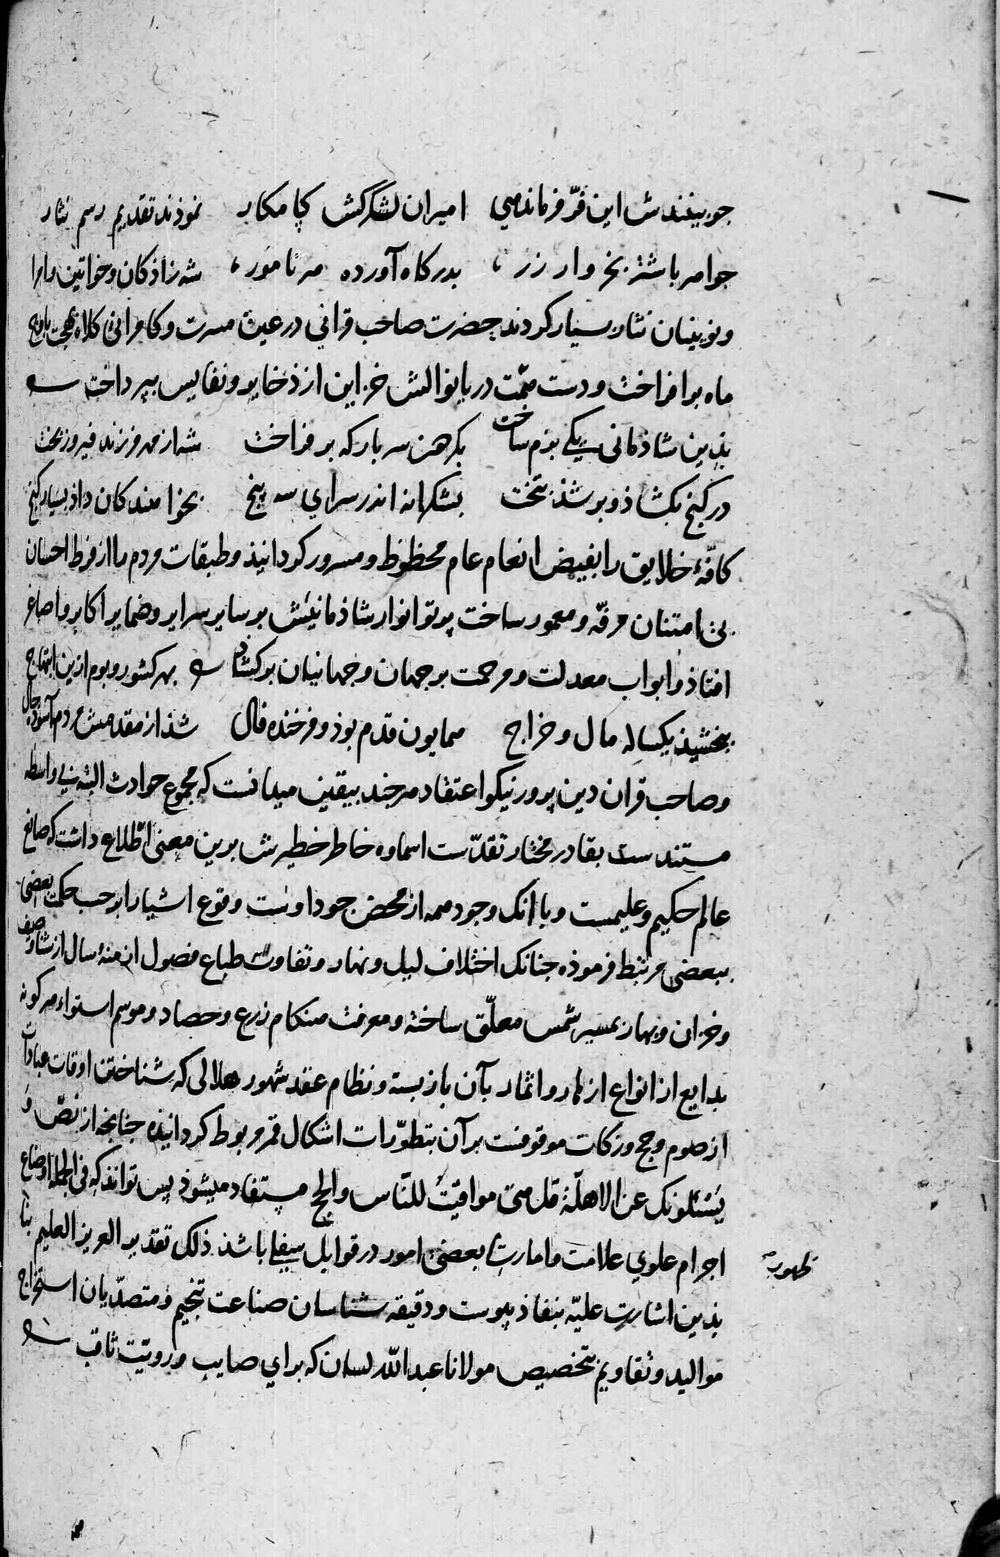 چو بینندش این فرّ فرماندهی امیران لشگرکش کامکار نموذند تقدیم رسم نثار
جواهر باشتر بخروار زر بدرکاه آورده هر نامور شه زاذکان وخواتین وامرا
ونوینیان نثار بسیار کردند حضرت صاحب قرانی در عین مسرت وکامرانی کلاه بهجت باوج
ماه برافراخت و دست همّت دریا نوالش خزاین از ذخایر و نفایس بپرداخت
بذین شاذمانی یکی بزم ساخت که هن سر بارکه برفراخت شه از مهر فرزند فیروزبخت
در کنج بکشاذ و بر شذ بتخت بشکرانه اندر سرای سه پنج بخواهندکان داذ بسیار کنج
کافّهٔ خلایق را بفیض انعام عام محظوظ و مسرور کردانیذ وطبقات مردم را از فرط احسان
بی امتنان مرفّه و معمور ساخت پرتو انوار شاذمانیش بر سایر سرایر وضمایر اکابر واصاغر
افتاذ وابواب معدلت و مرحمت بر جهان وجهانیان برکشاد بهر کشور و بوم ازین ابتهاج
ببخشیذ یکساله مال و خراج همایون قدم بوذ و فرخنده فال شذ از مقدمش مردم آسوذه حال
وصاحب قران دین پرور نیکو اعتقاد هر چند بیقین میدانست که مجموع حوادث البته بی واسطه
مستندست بقادر مختار تقدّست اسماوه خاطر خطیرش برین معنی اطّلاع داشت که صانع
عالم حکیم وعلیمست وبا انک وجود همه از محض جود اوست وقوع اشیا را بر حسب حکمت بعضی
ببعضی مرتبط فرموذه جنانک اختلاف لیل و نهار و تفاوت طباع فصول ازمنهٔ سال از شتا وصیف
وخزان و بهار بمسیر شمس معلّق ساخته ومعرفت هنکام زرع وحصاد و موسم استواء هر کونه
بدایع از انواع ازهار و اثمار بآن بازبسته ونظام عقد شهور هلالی که شناختن اوقات عبادات
از صوم و حج وزکات موقوفست بر آن بتطوّرات اشکال قمر مربوط کردانیذه جنانجه از نصّ و
یَسْئلونک عن الاهلّة قل هی مواقیتُ للنّاس والحج مستفاد میشوذ پس تواند که فی الجمله اوضاع
اجرام علوی علامت وامارت بعضی امور در قوابل سفلی باشذ ذلک تقدیر العزیز العلیم بنا
ظهور
بذین اشارت علیّه بنفاذ پیوست و دقیقه شناسان صناعت تنجیم و متصدّیان استخراج
موالید وتقاویم بتخصیص مولانا عبدالله لسان که برای صایب و رویّت ثاقب